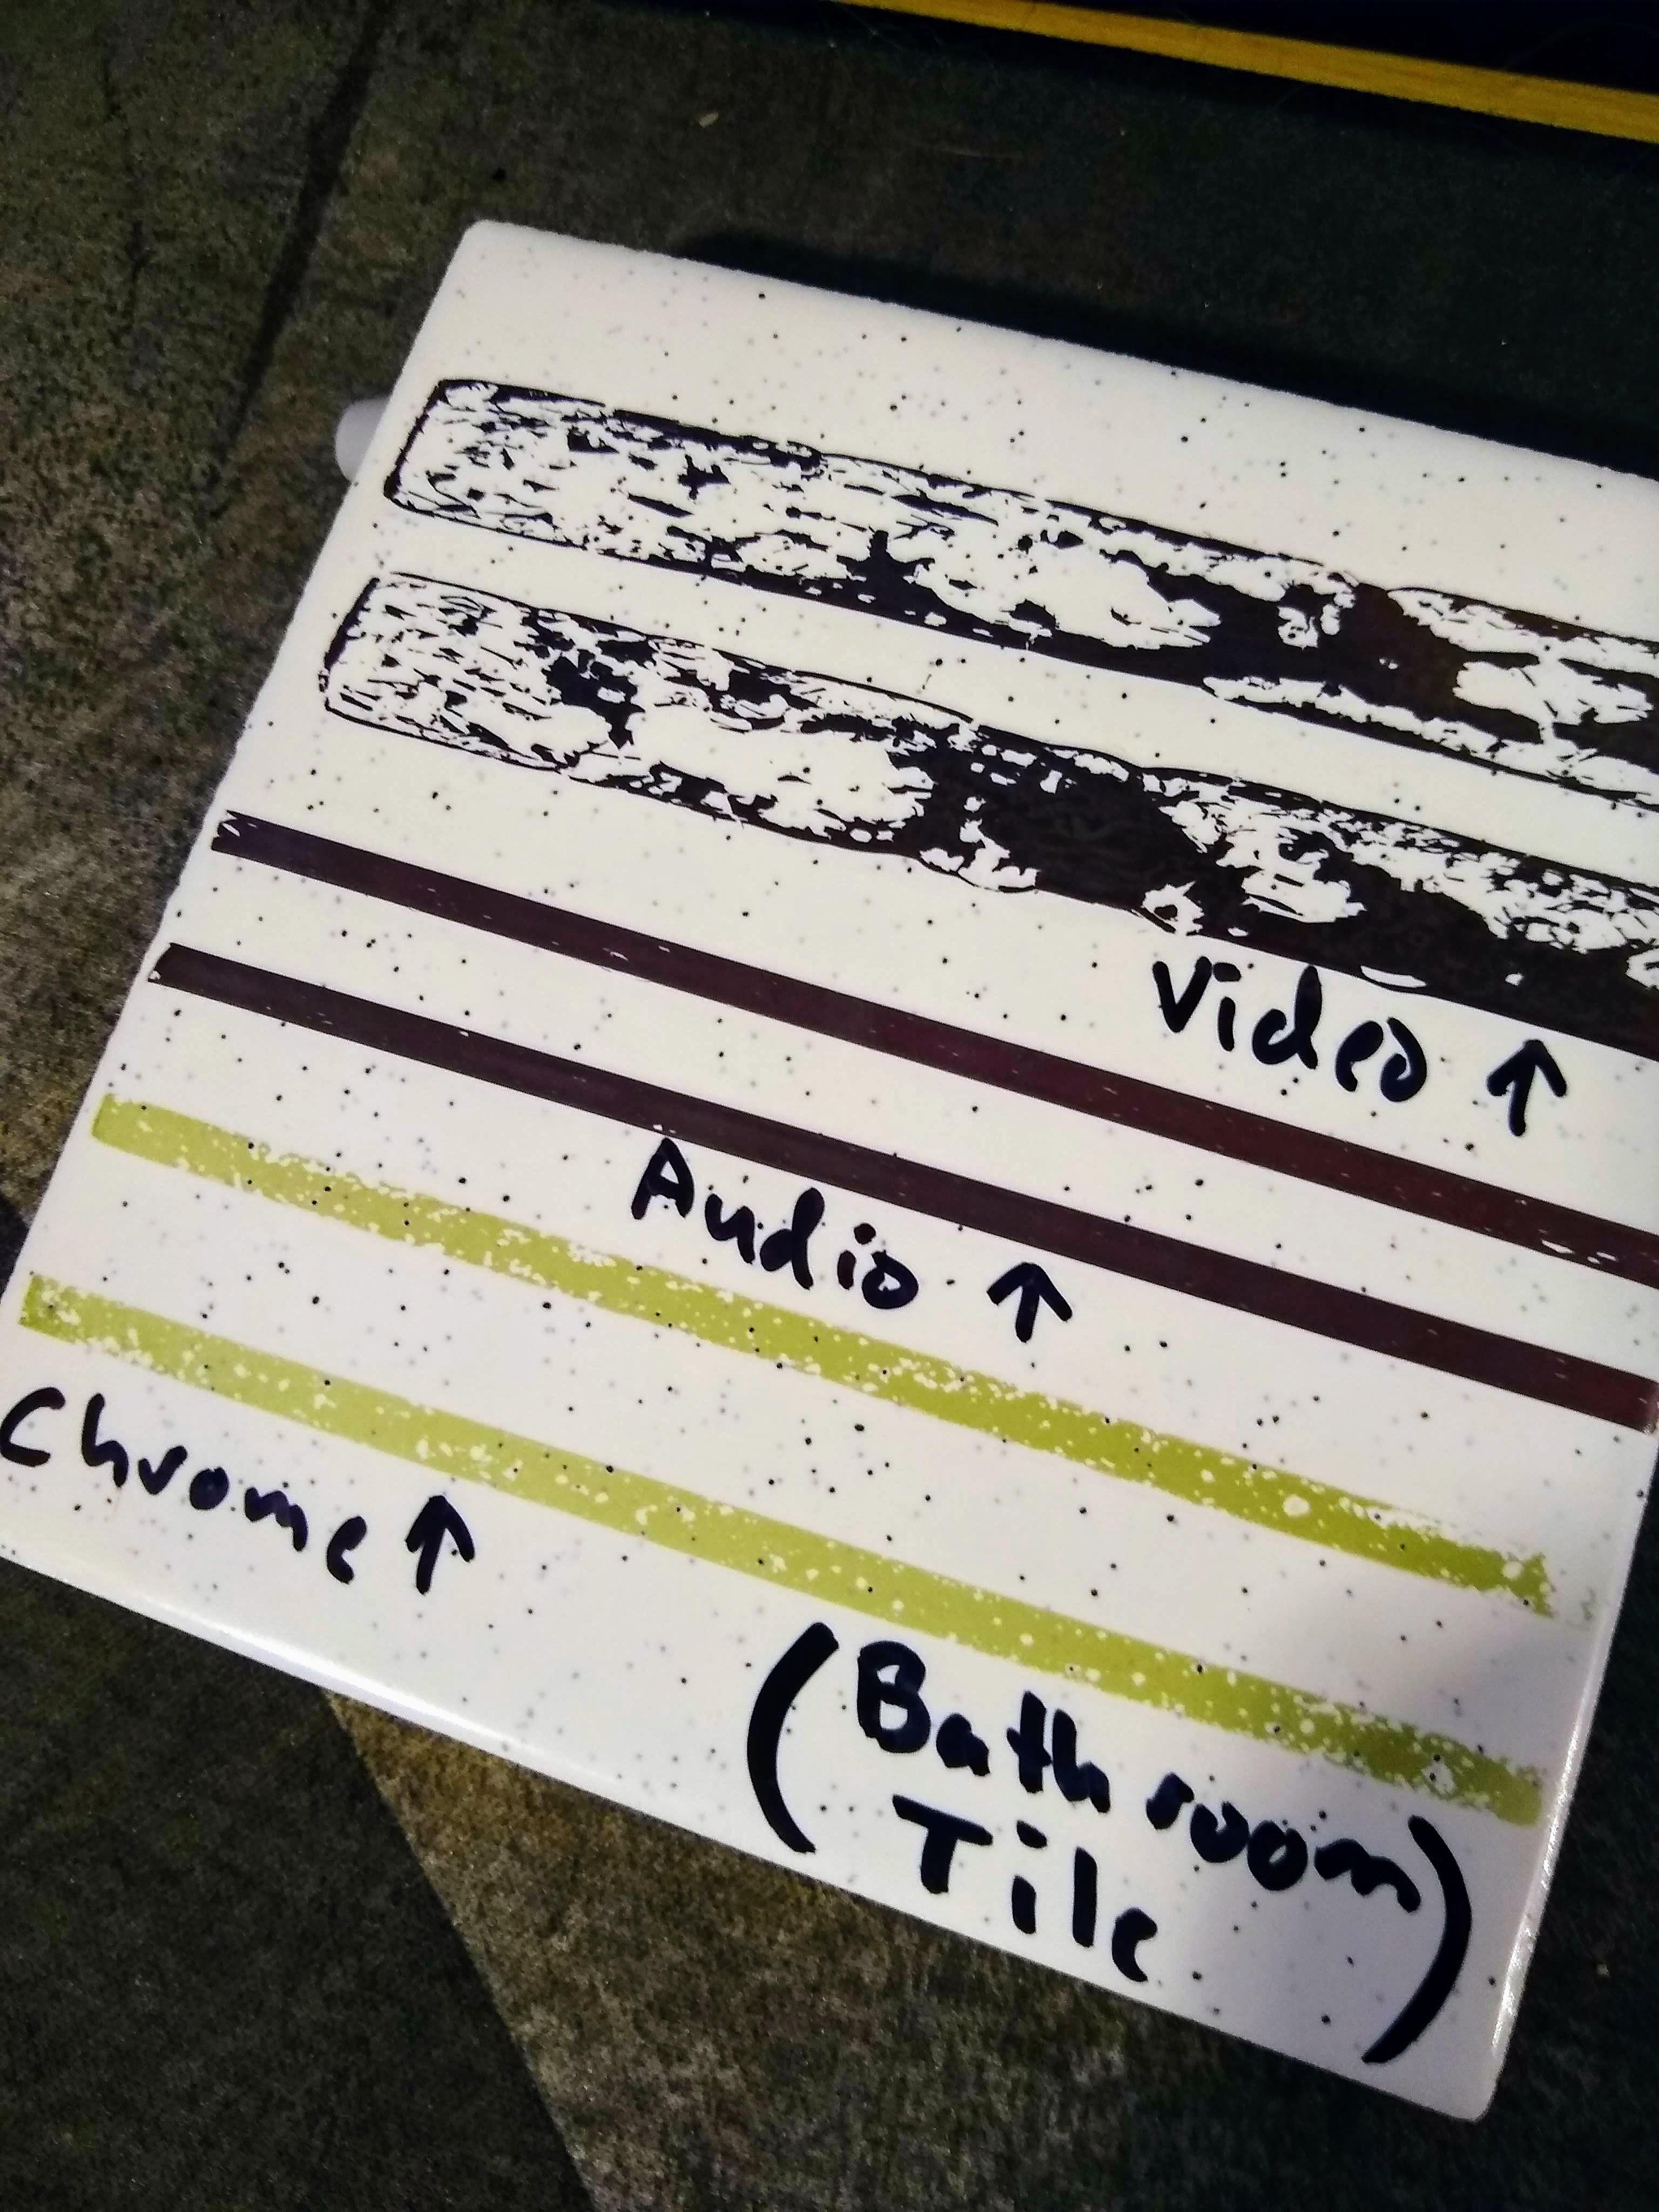 Video ↑
Audio ↑
Chrome ↑
(Bathroom
Tile)